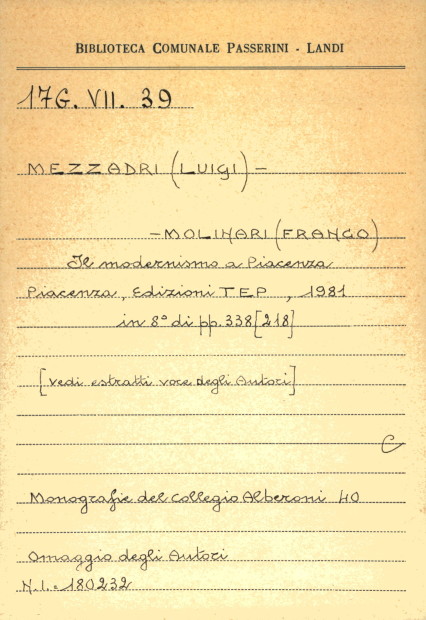 BIBLIOTECA COMUNALE PASSERINI - LANDI
17G. VII. 39
MEZZADRI (LUIGI) -
- MOLINARI (FRANCO)
Il modernismo a Piacenza
Piacenza, Edizioni TEP, 1981
in 8° di pp. 338 [218]
[vedi estratti voce degli Autori]
C
Monografie del Collegio Alberoni 40
Omaggio degli Autori
N.I. = 180232